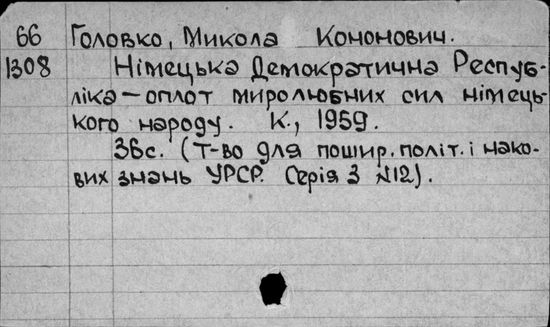 66 Головко, Микола Кононович.
1308 Німецька Демократична Респуб-
ліка — оплот миролюбних сил німець-
кого народу. К., 1959.
36с. (Т-во для пошир. політ. і нако-
вих знань УРСР. Серія 3 №12).